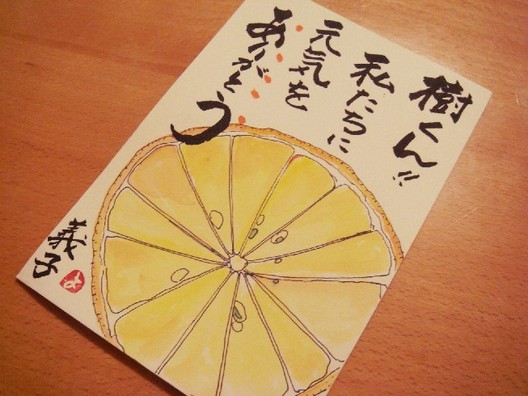 樹くん!!
私たちに
元気を
ありがとう
義子
よ